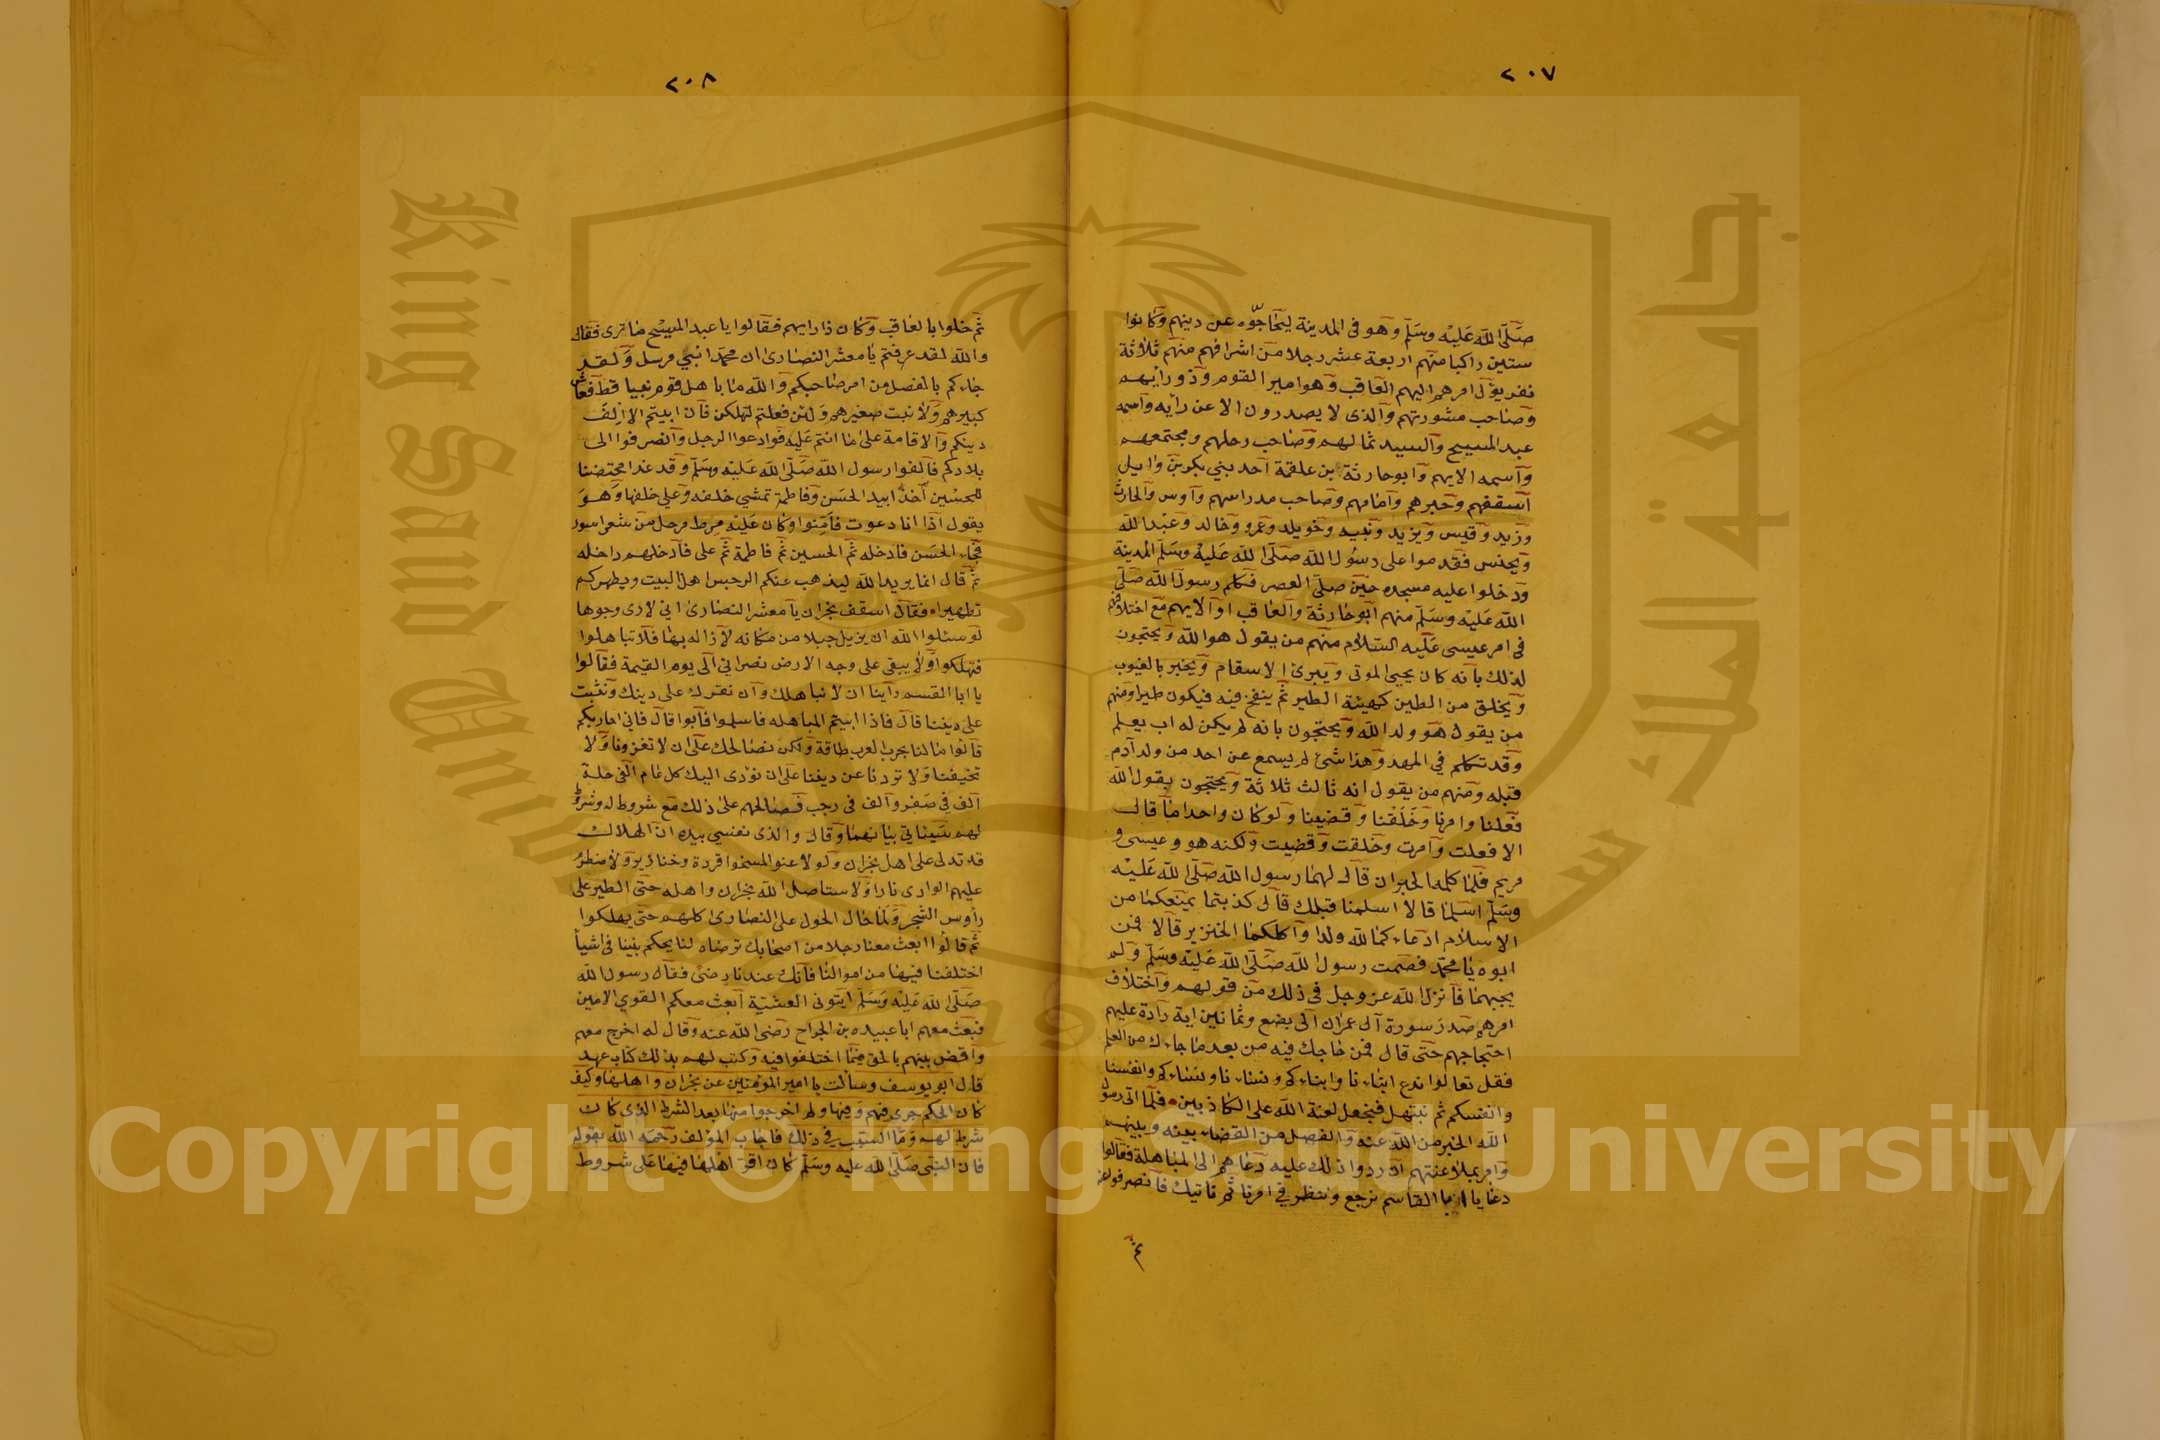 ٢٠٧
صلى الله عليه وسلم وهو فى المدينة ليحاجوه عن دينهم وكانوا
ستين راكبا منهم اربعة عشر رجلا من اشرافهم منهم ثلاثة
نفر يؤل امرهم اليهم العاقب وهو امير القوم وذو رأيهم
وصاحب مشورتهم والذى لا يصدرون الا عن رأيه واسمه
عبد المسيح والسيد ثمالهم وصاحب رحلهم ومجتمعهم
واسمه الايهم وابو حارثة بن علقمة احد بني بكر بن وايل
اسقفهم وحبرهم وامامهم وصاحب مدراسهم واوس والحارث
وزيد وقيس ويزيد ونبيه وخويلد وعمرو وخالد وعبد الله
ويحنس فقدموا على رسول الله صلى الله عليه وسلم المدينة
ودخلوا عليه مسجده حين صلى العصر فكلم رسول الله صلى
الله عليه وسلم منهم ابو حارثة والعاقب او الايهم مع اختلافهم
فى امر عيسى عليه السلام منهم من يقول هو الله ويحتجون
لذلك بانه كان يحيى الموتى ويبرئ الاسقام ويخبر بالغيوب
ويخلق من الطين كهيئة الطير ثم ينفخ فيه فيكون طيرا ومنهم
من يقول هو ولد الله ويحتجون بانه لم يكن له اب يعلم
وقد تكلم في المهد وهذا شئ لم يسمع عن احد من ولد آدم
قبله ومنهم من يقول انه ثالث ثلاثة ويحتجون بقول الله
فعلنا وامرنا وخلقنا وقضينا ولو كان واحدا ما قال
الا فعلت وامرت وخلقت وقضيت ولكنه هو وعيسى و
مريم فلما كلمه الحبران قال لهما رسول الله صلى الله عليه
وسلم اسلما قالا اسلمنا قبلك قال كذبتما يمنعكما من
الاسلام ادعاءكما لله ولدا واكلكما الخنزير قالا فمن
ابوه يا محمد فصمت رسول الله صلى الله عليه وسلم ولم
يجبهما فانزل الله عز وجل فى ذلك من قولهم واختلاف
امرهم صدر سورة آل عمران الى بضع وثمانين اية رادة عليهم
احتجاجهم حتى قال فمن حاجك فيه من بعد ما جاءك من العلم
فقل تعالوا ندع ابناءنا وابناءكم ونساءنا ونساءكم وانفسنا
وانفسكم ثم نبتهل فنجعل لعنة الله على الكاذبين فلما اتى رسول
الله الخبر من الله عنه والفصل من القضاء بينه وبينهم
وامر بملاعنتهم ان ردوا ذلك عليه دعاهم الى المباهلة فقالوا
دعنا يا ابا القاسم نرجع وننظر في امرنا ثم ناتيك فانصرفوا عنه
ثم
٢٠٨
ثم خلوا بالعاقب وكان ذا رايهم فقالوا يا عبد المسيح ما ترى فقال
والله لقد عرفتم يا معشر النصارى ان محمدا نبي مرسل ولقد
جاءكم بالفصل من امر صاحبكم والله ما باهل قوم نبيا قط فعاش
كبيرهم ولا نبت صغيرهم ولئن فعلتم لتهلكن فان ابيتم الا الف
دينكم والاقامة على ما انتم عليه فوادعوا الرجل وانصرفوا الى
بلادكم فاتوا رسول الله صلى الله عليه وسلم وقد غدا محتضنا
للحسين آخذا بيد الحسن وفاطمة تمشي خلفه وعلى خلفها وهو
يقول اذا انا دعوت فامنوا وكان عليه مرط مرحل من شعر اسود
فجاء الحسن فادخله ثم الحسين ثم فاطمة ثم على فادخلهم داخله
ثم قال انما يريد الله ليذهب عنكم الرجس اهل البيت ويطهركم
تطهيرا فقال اسقف نجران يا معشر النصارى اني لارى وجوها
لو سئلوا الله ان يزيل جبلا من مكانه لازاله بها فلا تباهلوا
فتهلكوا ولا يبقى على وجه الارض نصراني الى يوم القيمة فقالوا
يا ابا القسم راينا ان لا نباهلك وان نقرك على دينك ونثبت
على ديننا قال فاذا ابيتم المباهله فاسلموا فابوا قال فاني احاربكم
قالوا ما لنا بحرب العرب طاقة ولكن نصالحك على ان لا تغزونا ولا
تخيفنا ولا تردنا عن ديننا على ان نؤدى اليك كل عام الفى حلة
الف فى صفر والف فى رجب فصالحهم على ذلك مع شروط له وشروط
لهم سيأتي بيانهما وقال والذى نفسي بيده ان الهلاك
قد تدلى على اهل نجران ولو لاعنوا لمسخوا قردة وخنازير ولاضطرم
عليهم الوادى نارا ولاستاصل الله نجران واهله حتى الطير على
رأوس الشجر ولما حال الحول على النصارى كلهم حتى يهلكوا
ثم قالوا ابعث معنا رجلا من اصحابك ترضاه لنا يحكم بيننا فى اشيأ
اختلفنا فيها من اموالنا فانك عندنا رضى فقال رسول الله
صلى الله عليه وسلم ايتونى العشية ابعث معكم القوي الامين
فبعث معهم ابا عبيده بن الجراح رضى الله عنه وقال له اخرج معهم
واقض بينهم بالحق فيما اختلفوا فيه وكتب لهم بذلك كتاب عهد
قال ابو يوسف وسألت يا امير المؤمنين عن نجران واهلها وكيف
كان الحكم جرى فيهم وفيها ولم اخرجوا منها بعد الشرط الذى كان
شرط لهم وما السبب في ذلك فاجاب المؤلف رحمه الله بقوله
فان النبى صلى الله عليه وسلم كان اقر اهلها فيها على شروط
King Saud University
جامعة الملك سعود
1957
Copyright © King Saud University